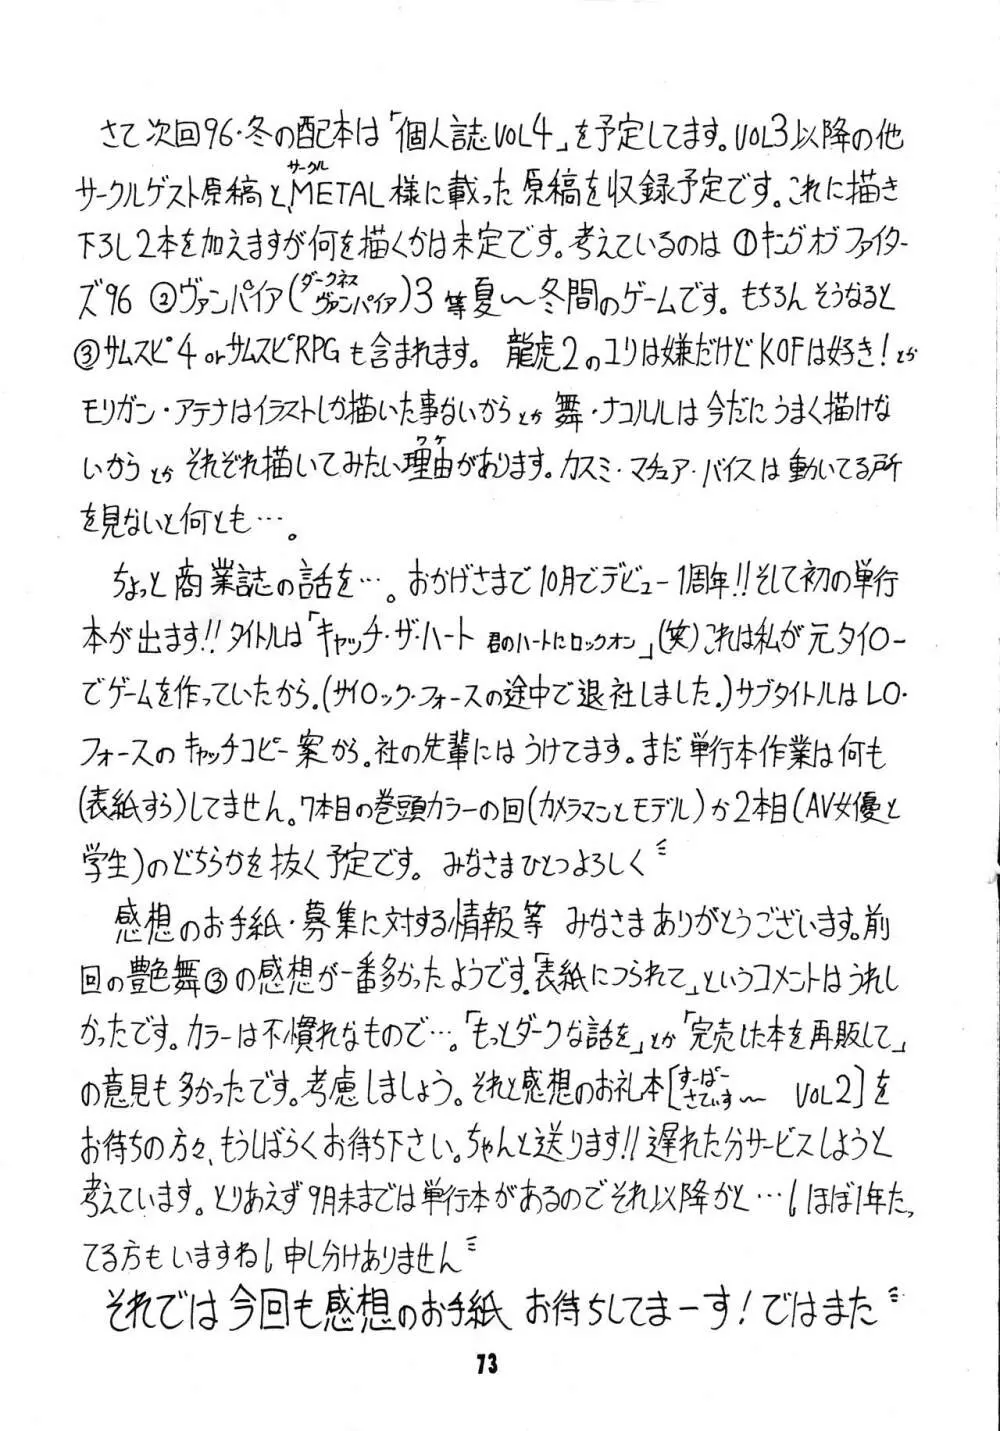 さて次回96・冬の配本は「個人誌VOL4」を予定してます。VOL3以降の他
サークルゲスト原稿と、METAL様に載った原稿を収録予定です。これに描き
サークル
下ろし2本を加えますが何を描くかは未定です。考えているのは ①キングオブファイター
ズ96 ②ヴァンパイア(ダークネス ヴァンパイア)3 等夏〜冬間のゲームです。もちろん そうなると
③サムスピ4 or サムスピRPGも含まれます。 龍虎2のユリは嫌だけどKOFは好き!とか
モリガン・アテナはイラストしか描いた事ないからとか 舞・ナコルルは今だにうまく描けな
いからとか それぞれ描いてみたい理由があります。カスミ・マチュア・バイスは動いてる所
ワケ
を見ないと何とも…。
ちょっと商業誌の話を…。おかげさまで10月でデビュー1周年!!そして初の単行
本が出ます!!タイトルは「キャッチ・ザ・ハート 君のハートにロックオン」(笑)これは私が元タイロー
でゲームを作っていたから。(サイロック・フォースの途中で退社しました。)サブタイトルはLO・
フォースのキャッチコピー案から。社の先輩にはうけてます。まだ単行本作業は何も
(表紙すら)してません。7本目の巻頭カラーの回(カメラマンとモデル)か2本目(AV女優と
学生)のどちらかを抜く予定です。 みなさまひとつよろしく
感想のお手紙・募集に対する情報等 みなさまありがとうございます。前
回の艶色舞③の感想が一番多かったようです。「表紙につられて」というコメントはうれし
かったです。カラーは不慣れなもので…。「もっとダークな話を」とか「完売した本を再販して」
の意見も多かったです。考慮しましょう。それと感想のお礼本[すーぱー さでぃすー〜 VOL2]を
お待ちの方々、もうしばらくお待ち下さい。ちゃんと送ります!!遅れた分サービスしようと
考えています。とりあえず9月末までは単行本があるのでそれ以降かと…(ほぼ1年たっ
てる方もいますね)申し分けありません
それでは今回も感想のお手紙 お待ちしてまーす!ではまた
73